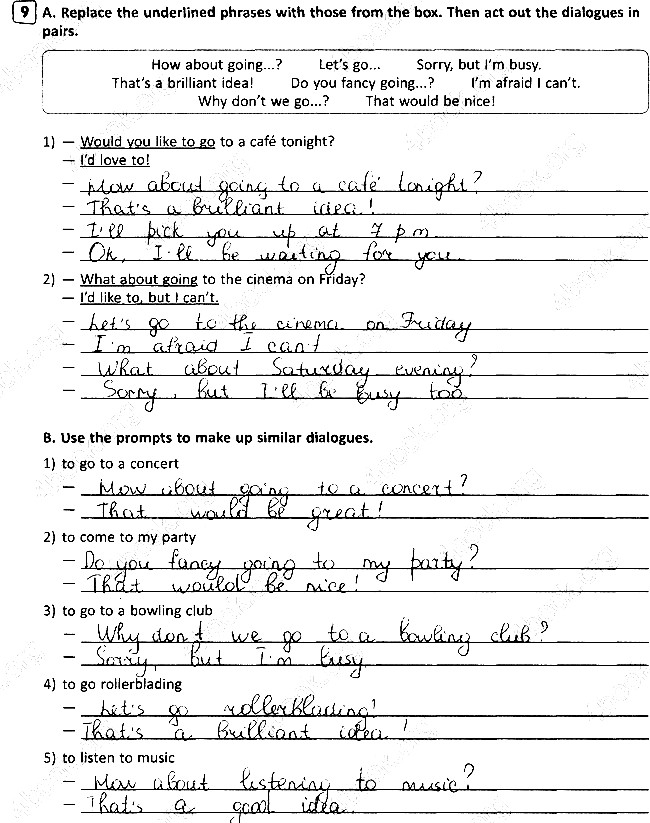 9 A. Replace the underlined phrases with those from the box. Then act out the dialogues in
pairs.
How about going...? Let's go... Sorry, but I'm busy.
That's a brilliant idea! Do you fancy going...? I'm afraid I can't.
Why don't we go...? That would be nice!
1) — Would you like to go to a café tonight?
— I'd love to!
— How about going to a café tonight?
— That's a brilliant idea!
— I'll pick you up at 7 p m.
— Ok, I'll be waiting for you.
2) — What about going to the cinema on Friday?
— I'd like to, but I can't.
— Let's go to the cinema on Friday
— I'm afraid I can't
— What about Saturday evening?
— Sorry, but I'll be busy too
B. Use the prompts to make up similar dialogues.
1) to go to a concert
— How about going to a concert?
— That would be great!
2) to come to my party
— Do you fancy going to my party?
— That would be nice!
3) to go to a bowling club
— Why don't we go to a bowling club?
— Sorry, but I'm busy
4) to go rollerblading
— Let's go rollerblading!
— That's a brilliant idea!
5) to listen to music
— How about listening to music?
— That's a good idea.